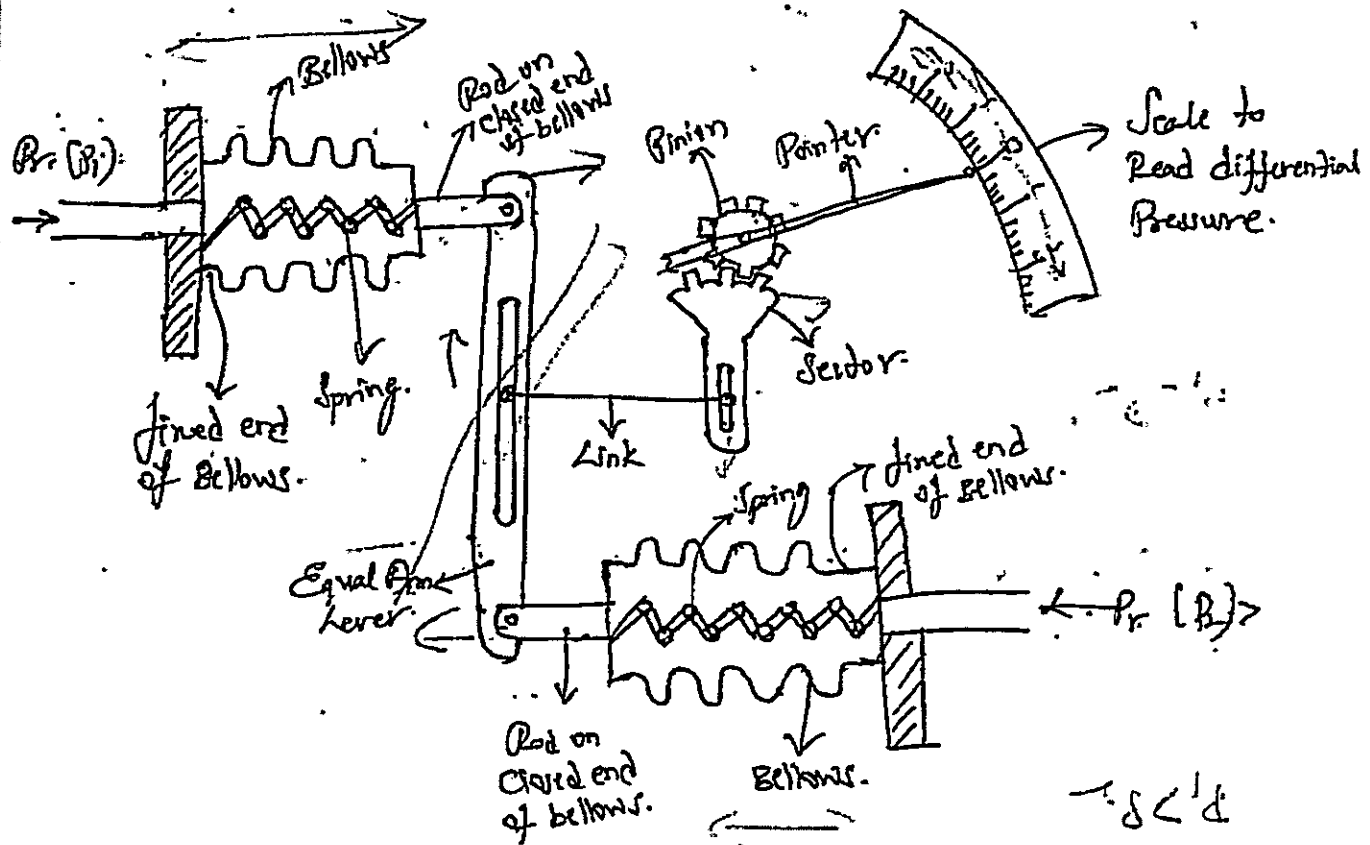 Bellows
Rod on
closed end
of bellows
Pr. (P1).
Pinion
Pointer.
Scale to
Read differential
Pressure.
Spring.
fixed end
of Bellows.
Link
Sector.
fixed end
of Bellows.
Spring
Equal Arm
Lever.
Pr [P2]
Rod on
Closed end
of bellows.
Bellows.